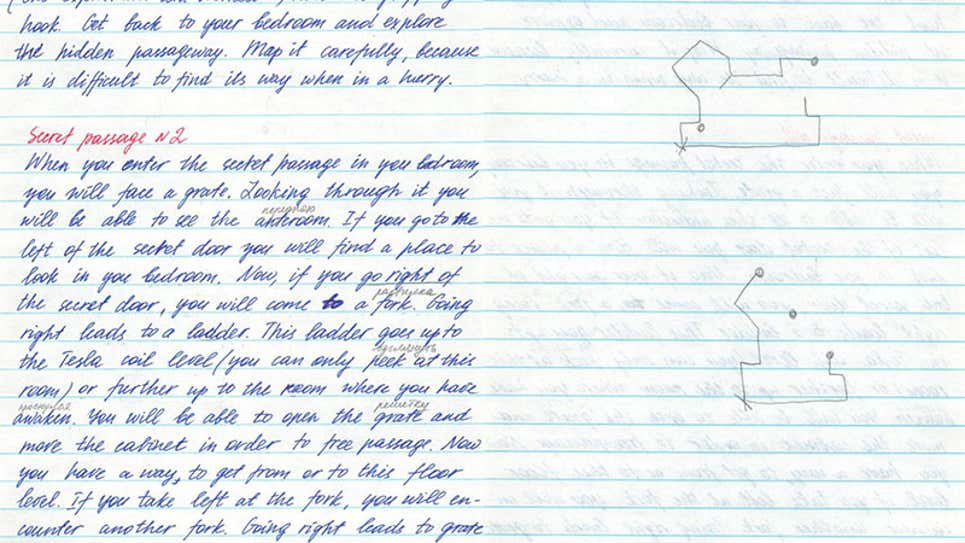 hook. Get back to your bedroom and explore
the hidden passageway. Map it carefully, because
it is difficult to find its way when in a hurry.
Secret passage N2
When you enter the secret passage in you bedroom,
you will face a grate. Looking through it you
will be able to see the anteroom. If you go to the
left of the secret door you will find a place to
look in you bedroom. Now, if you go right of
the secret door, you will come to a fork. Going
развилка
right leads to a ladder. This ladder goes up to
the Tesla coil level (you can only peek at this
room) or further up to the room where you have
решетку
awaken. You will be able to open the grate and
move the cabinet in order to free passage. Now
you have a way, to get from or to this floor
level. If you take left at the fork, you will en-
counter another fork. Going right leads to grate